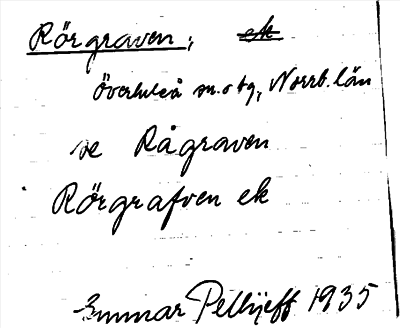 Rörgraven, ek
Överluleå sn. o tg., Norrb. län
se Rågraven
Rörgrafven ek
Gunnar Pellijeff 1935